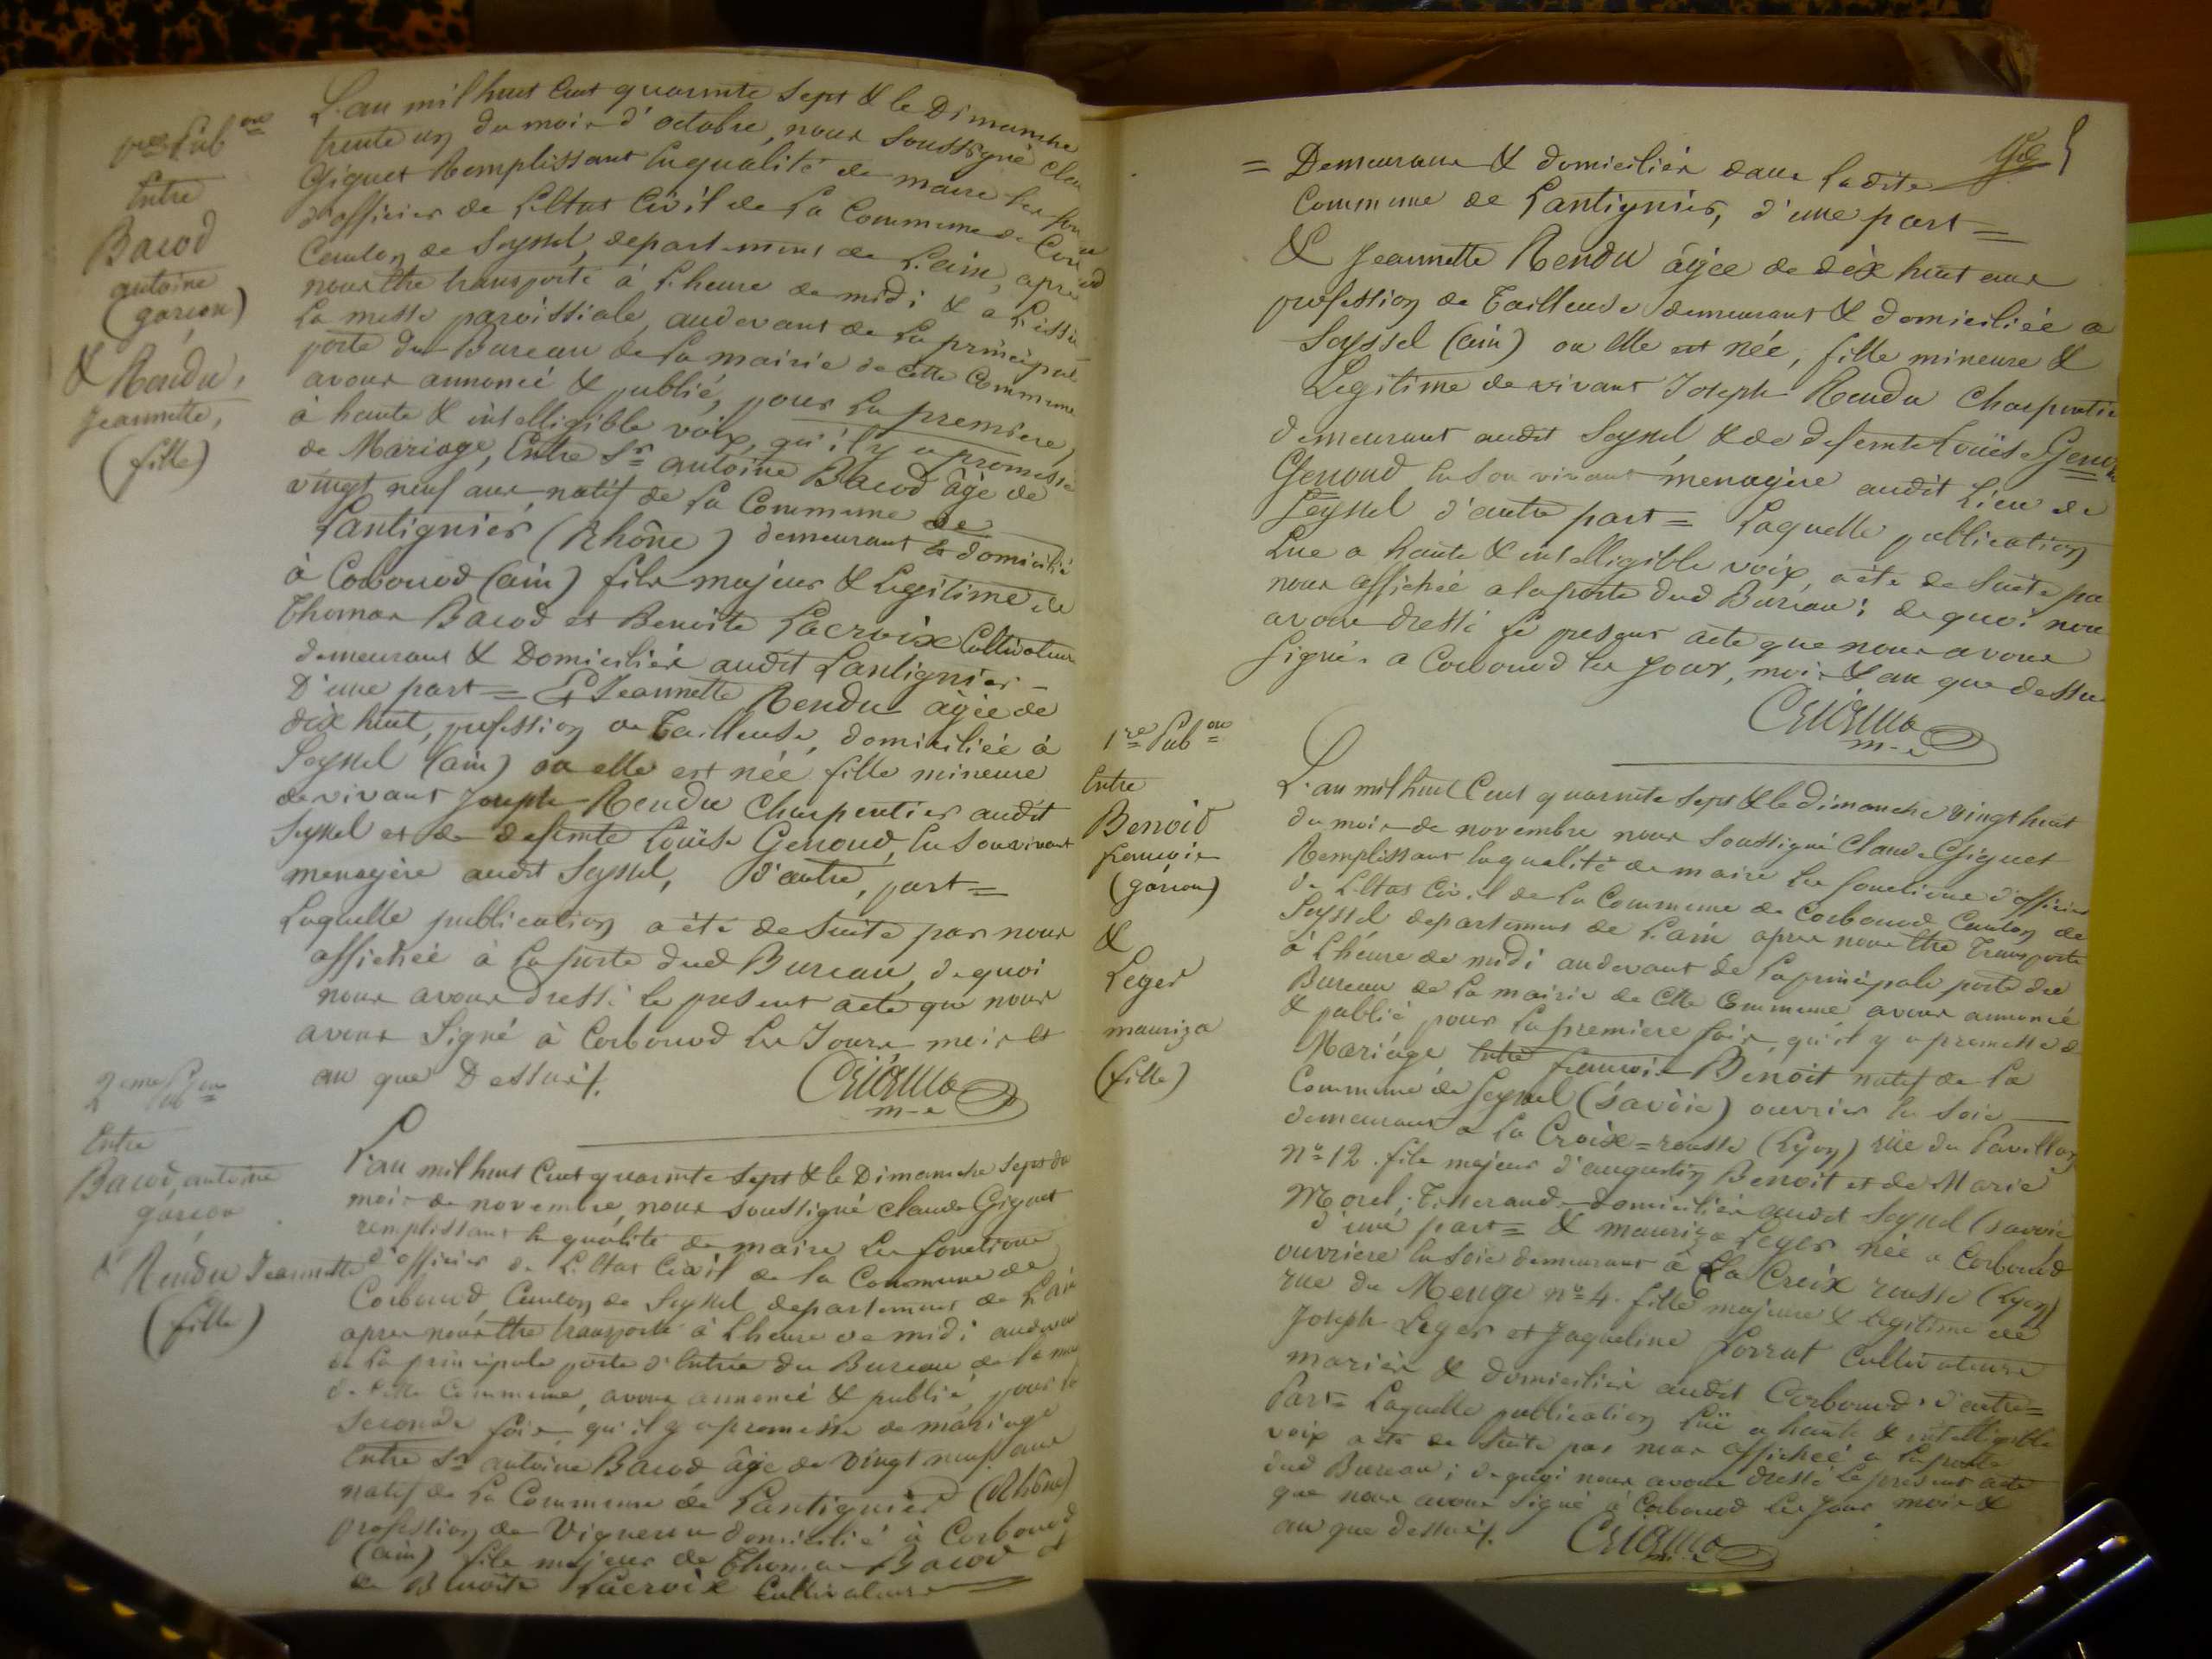 1re Pub.on
Entre
Bacod
antoine
(garcon)
& Rendu,
Jeannette,
(fille)
L'an mil huit Cent quarante Sept & le Dimanche
trente un du mois d'octobre, nous Soussigné Clau
Giguet Remplissant la qualité de maire les fon
d'officier de L'Etat Civil de La Commune de Cor
Canton de Seyssel, departement de L'ain, après
nous être transporté à L'heure de midi & a L'issu
La messe paroissiale, audevant de La principal
porte du Bureau de La mairie de Cette Commune
avons annoncé & publié, pour La premiere,
à haute & intelligible voix, qu'il y a promesse
de Mariage, Entre Sr antoine Bacod âgé de
vingt neuf ans, natif de La Commune de
Lantignier (Rhône) demeurant & domicilié
à Corbonod (ain) fils majeur & Legitime de
Thomas Bacod et Benoite Lacroix Cultivateurs
demeurant & Domiciliés audit Lantignier _
D'une part = Et Jeannette Rendu âgée de
dix huit, profession de Tailleuse, domiciliée à
Seyssel (ain) ou elle est née fille mineure
de vivant Joseph Rendu Charpentier audit
Seyssel et de defemte Louise Genoud, En Son vivant
menagère audit Seyssel, d'autre, part =
Laquelle publication a été de Suite par nous
affichée à La porte dud Bureau, de quoi
nous avons dressé le present acte que nous
avons Signé à Corbonod Les Jours, mois et
an que Dessus./.
m-e
2eme Pub.on
Entre
Bacod, antoine
garcon
& Rendu Jeannette
(fille)
L'an mil huit Cent quarante Sept & le Dimanche Sept du
mois de novembre, nous soussigné Claude Giguet
remplissant la qualité de maire Les fonctions
d'officier de L'Etat Civil de la Commune de
Corbonod, Canton de Seyssel departement de L'ain
apres nous être transporté à L'heure de midi audevan
de La principale porte d'Entrée du Bureau de la ma
de Cette Commune, avons annoncé & publié, pour la
Seconde fois, qu'il y a promesse de mariage
Entre Sr antoine Bacod âgé de vingt neuf ans
natif de La Commune de Lantignier (Rhône)
profession de Vigneron domicilié à Corbonod
(ain) fils majeur de Thomas Bacod et
de Benoite Lacroix Cultivateurs
5
= Demeurans & domiciliés dans Ladite
Commune de Lantignier, d'une part =
& Jeannette Rendu âgée de dix huit ans
profession de Tailleuse demeurant & domiciliée a
Seyssel (ain) ou Elle est née, fille mineure &
Legitime de vivant Joseph Rendu Charpentie
demeurant audit Seyssel & de defemte Louise Geno
Genoud En Son vivant menagère audit Lieu de
Seyssel d'autre part = Laquelle publication
Lue a haute & intelligible voix, a été de Suite pa
nous affichée a la porte dud Bureau; de quoi nou
avons dressé Le present acte que nous avons
Signé. a Corbonod Les Jour, mois & an que dessus
m-e
1re Pub.on
Entre
Benoid
francois
(garcon)
&
Leger
mauriza
(fille)
L'an mil huit Cent quarante Sept & le dimanche vingt huit
du mois de novembre nous Soussigné Claude Giguet
Remplissant la qualité de maire Les fonctions d'officier
de L'Etat Civil de La Commune de Corbonod Canton de
Seyssel departement de L'ain apres nous être Transporté
à L'heure de midi audevant de La principale porte du
Bureau de La mairie de Cette Commune avons annoncé
& publié pour La premiere fois, qu'il y a promesse de
Mariage Entre francois Benoit natif de La
Commune de Seyssel (Savoie) ouvrier En Soie
demeurant a La Croix=rousse (Lyon) rüe du Pavillon
No 12. fils majeur d'augustin Benoit et de Marie
Morel; Tisserands domiciliés audit Seyssel (savoie
d'une part = & mauriza Leger née a Corbonod
ouvriere En Soie demeurant à La Croix rousse (Lyon)
rue du Menge no 4. fille majeure & legitime de
Joseph Leger et Jaqueline Porrat Cultivateurs
mariés & domiciliés audit Corbonod. d'autre=
Part= Laquelle publication Lüe a haute & intelligible
voix a été de Suite par nous affichée a La porte
dud Bureau; de quoi nous avons dressé Le present acte
que nous avons Signé à Corbonod Les Jour mois &
an que dessus./.